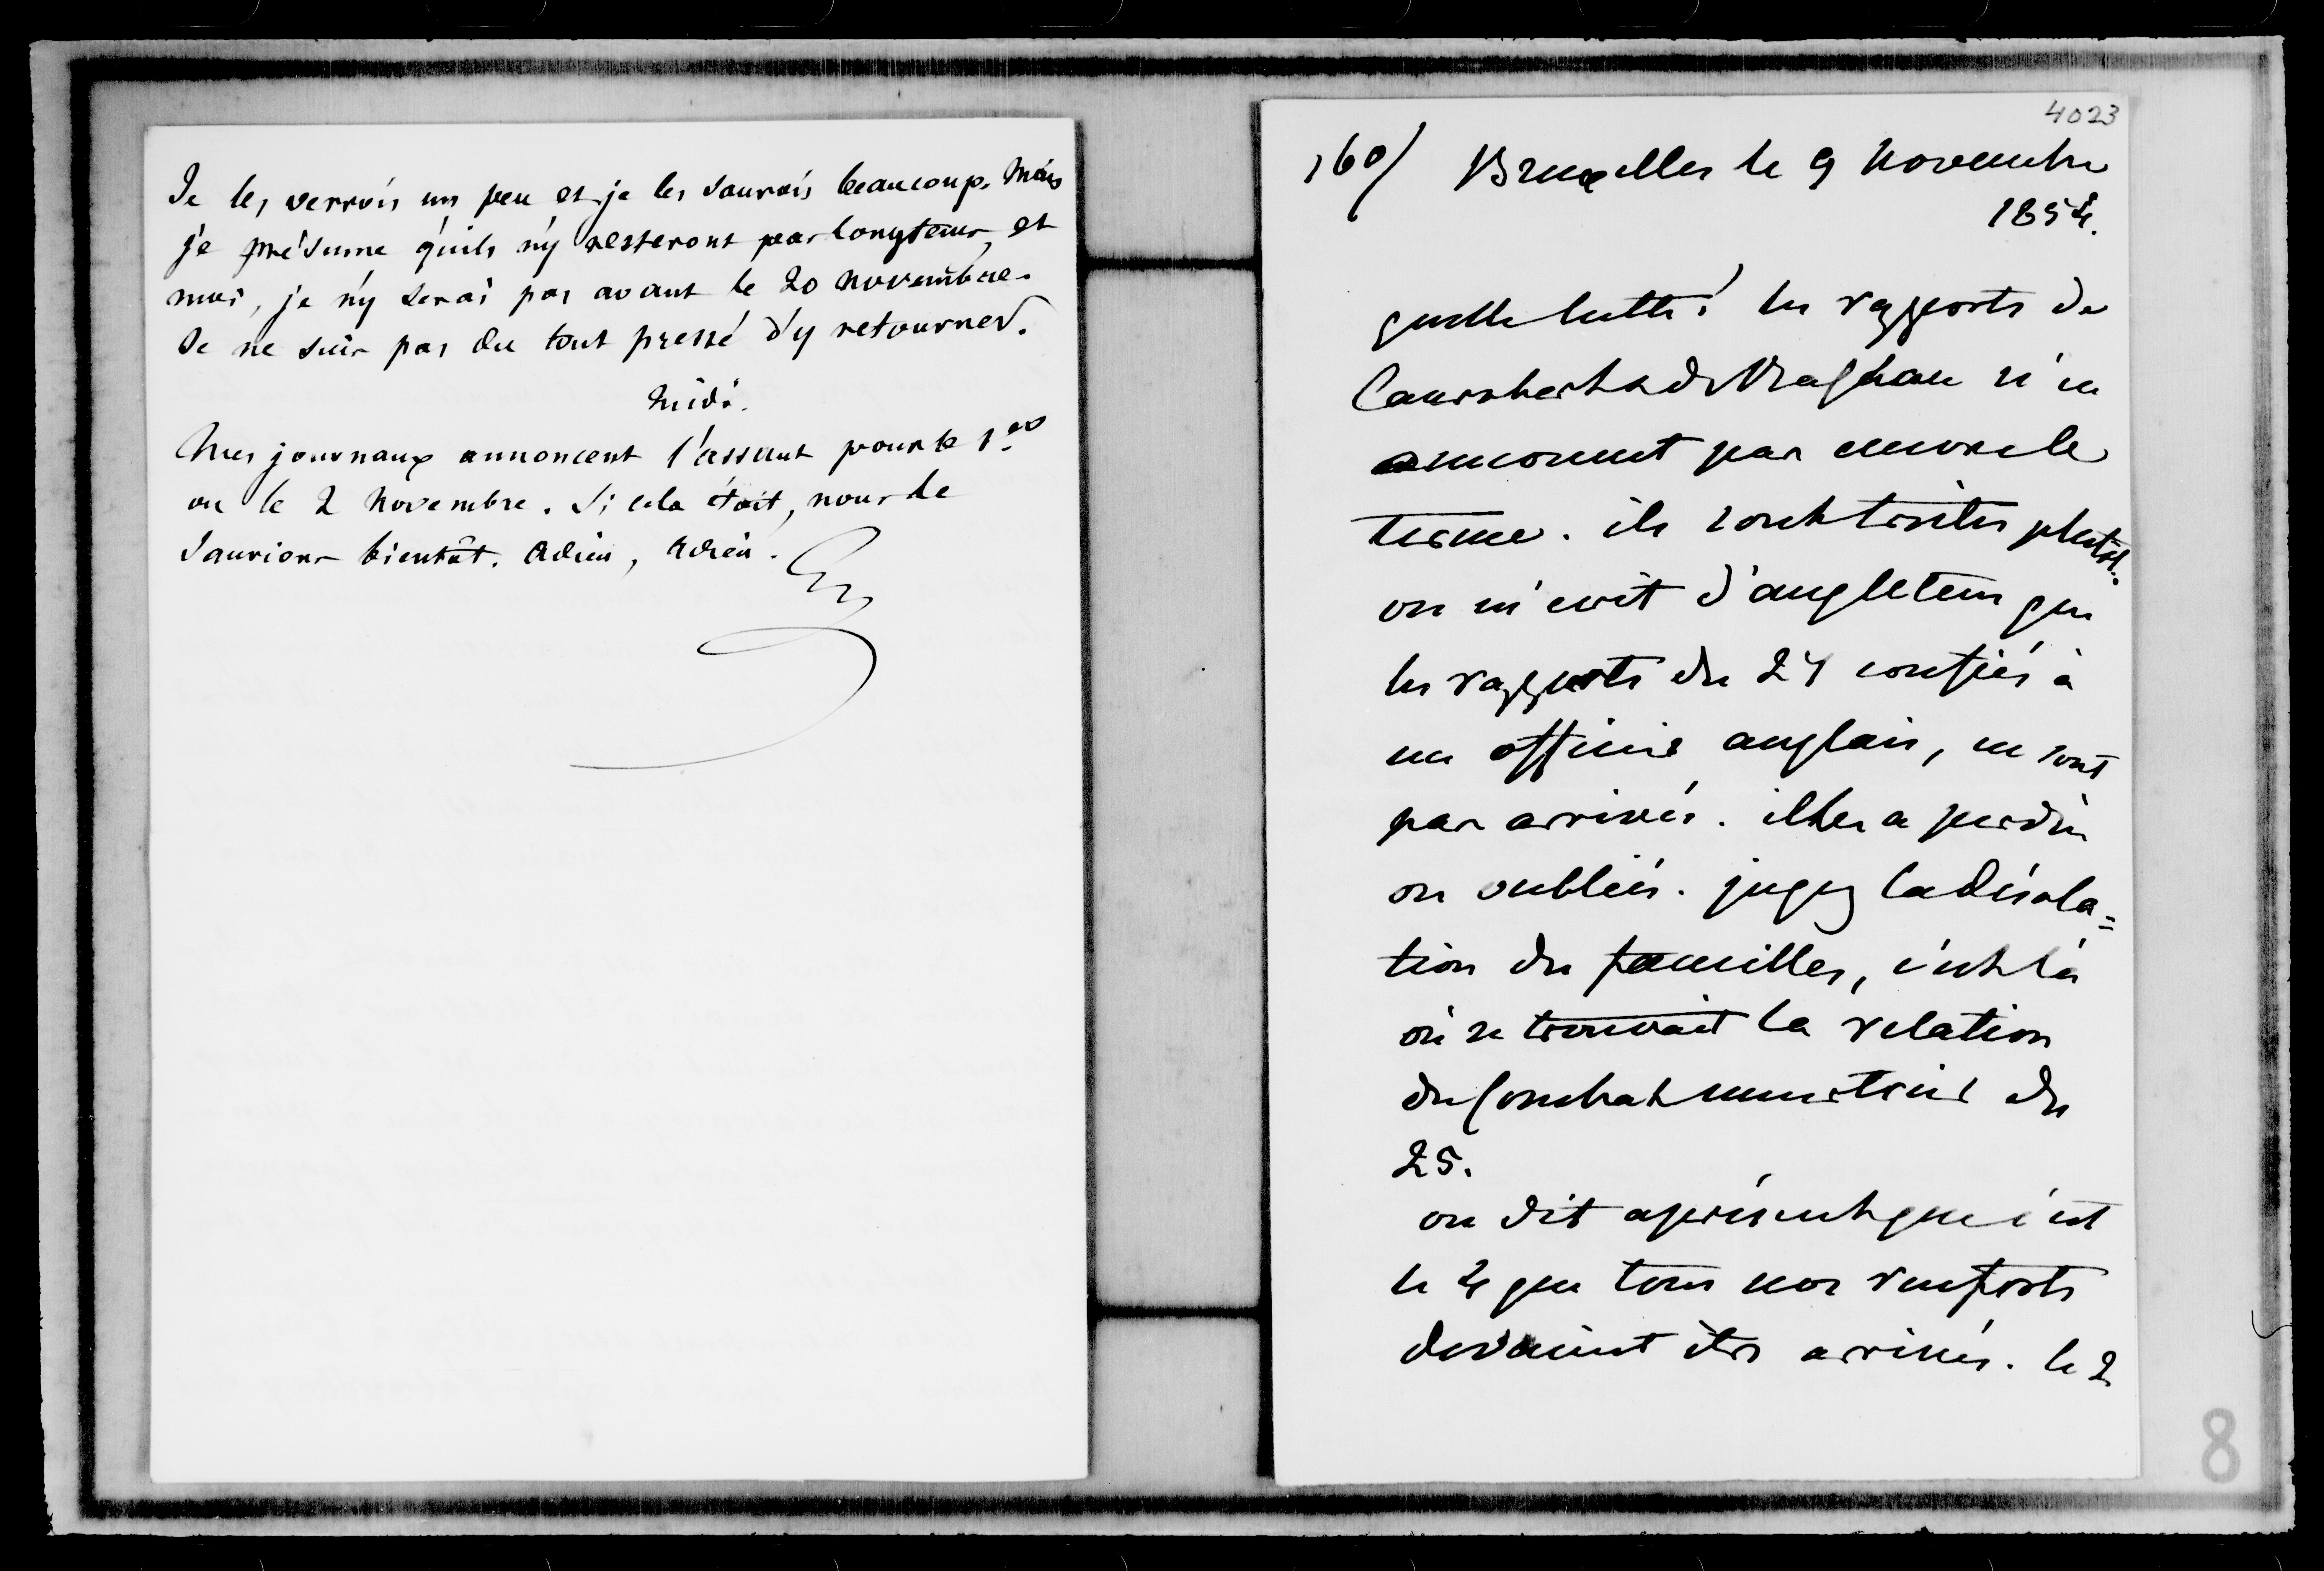 Je les verrois un peu et je les saurois beaucoup. Mais
je présume qu'ils n'y resteront pas longtems, et
moi, je n'y serai pas avant le 20 novembre.
Je ne suis pas du tout pressé d'y retourner.
Midi.
Mes journaux annoncent l'assaut pour le 1er
ou le 2 novembre. Si cela étoit, nous le
saurions bientôt. Adieu, Adieu.
4023
160/ Bruxelles le 9 novembre
1854.
quelle lutte! les rapports de
Canrobert & de Raglan n'en
annoncent pas encore le
terme. ils sont tristes plutot.
on m'ecrit d'angleterre que
les rapports du 24 confiés à
un officier anglais, ne sont
pas arrivés. il les a perdus
ou oubliés. jugez la désola=
tion des familles, c'est là
où se trouvait la relation
du combat meurtrier du
25.
on dit aprésent que c'est
le 4 que tous nos renforts
devaient être arrivés. le 2
8